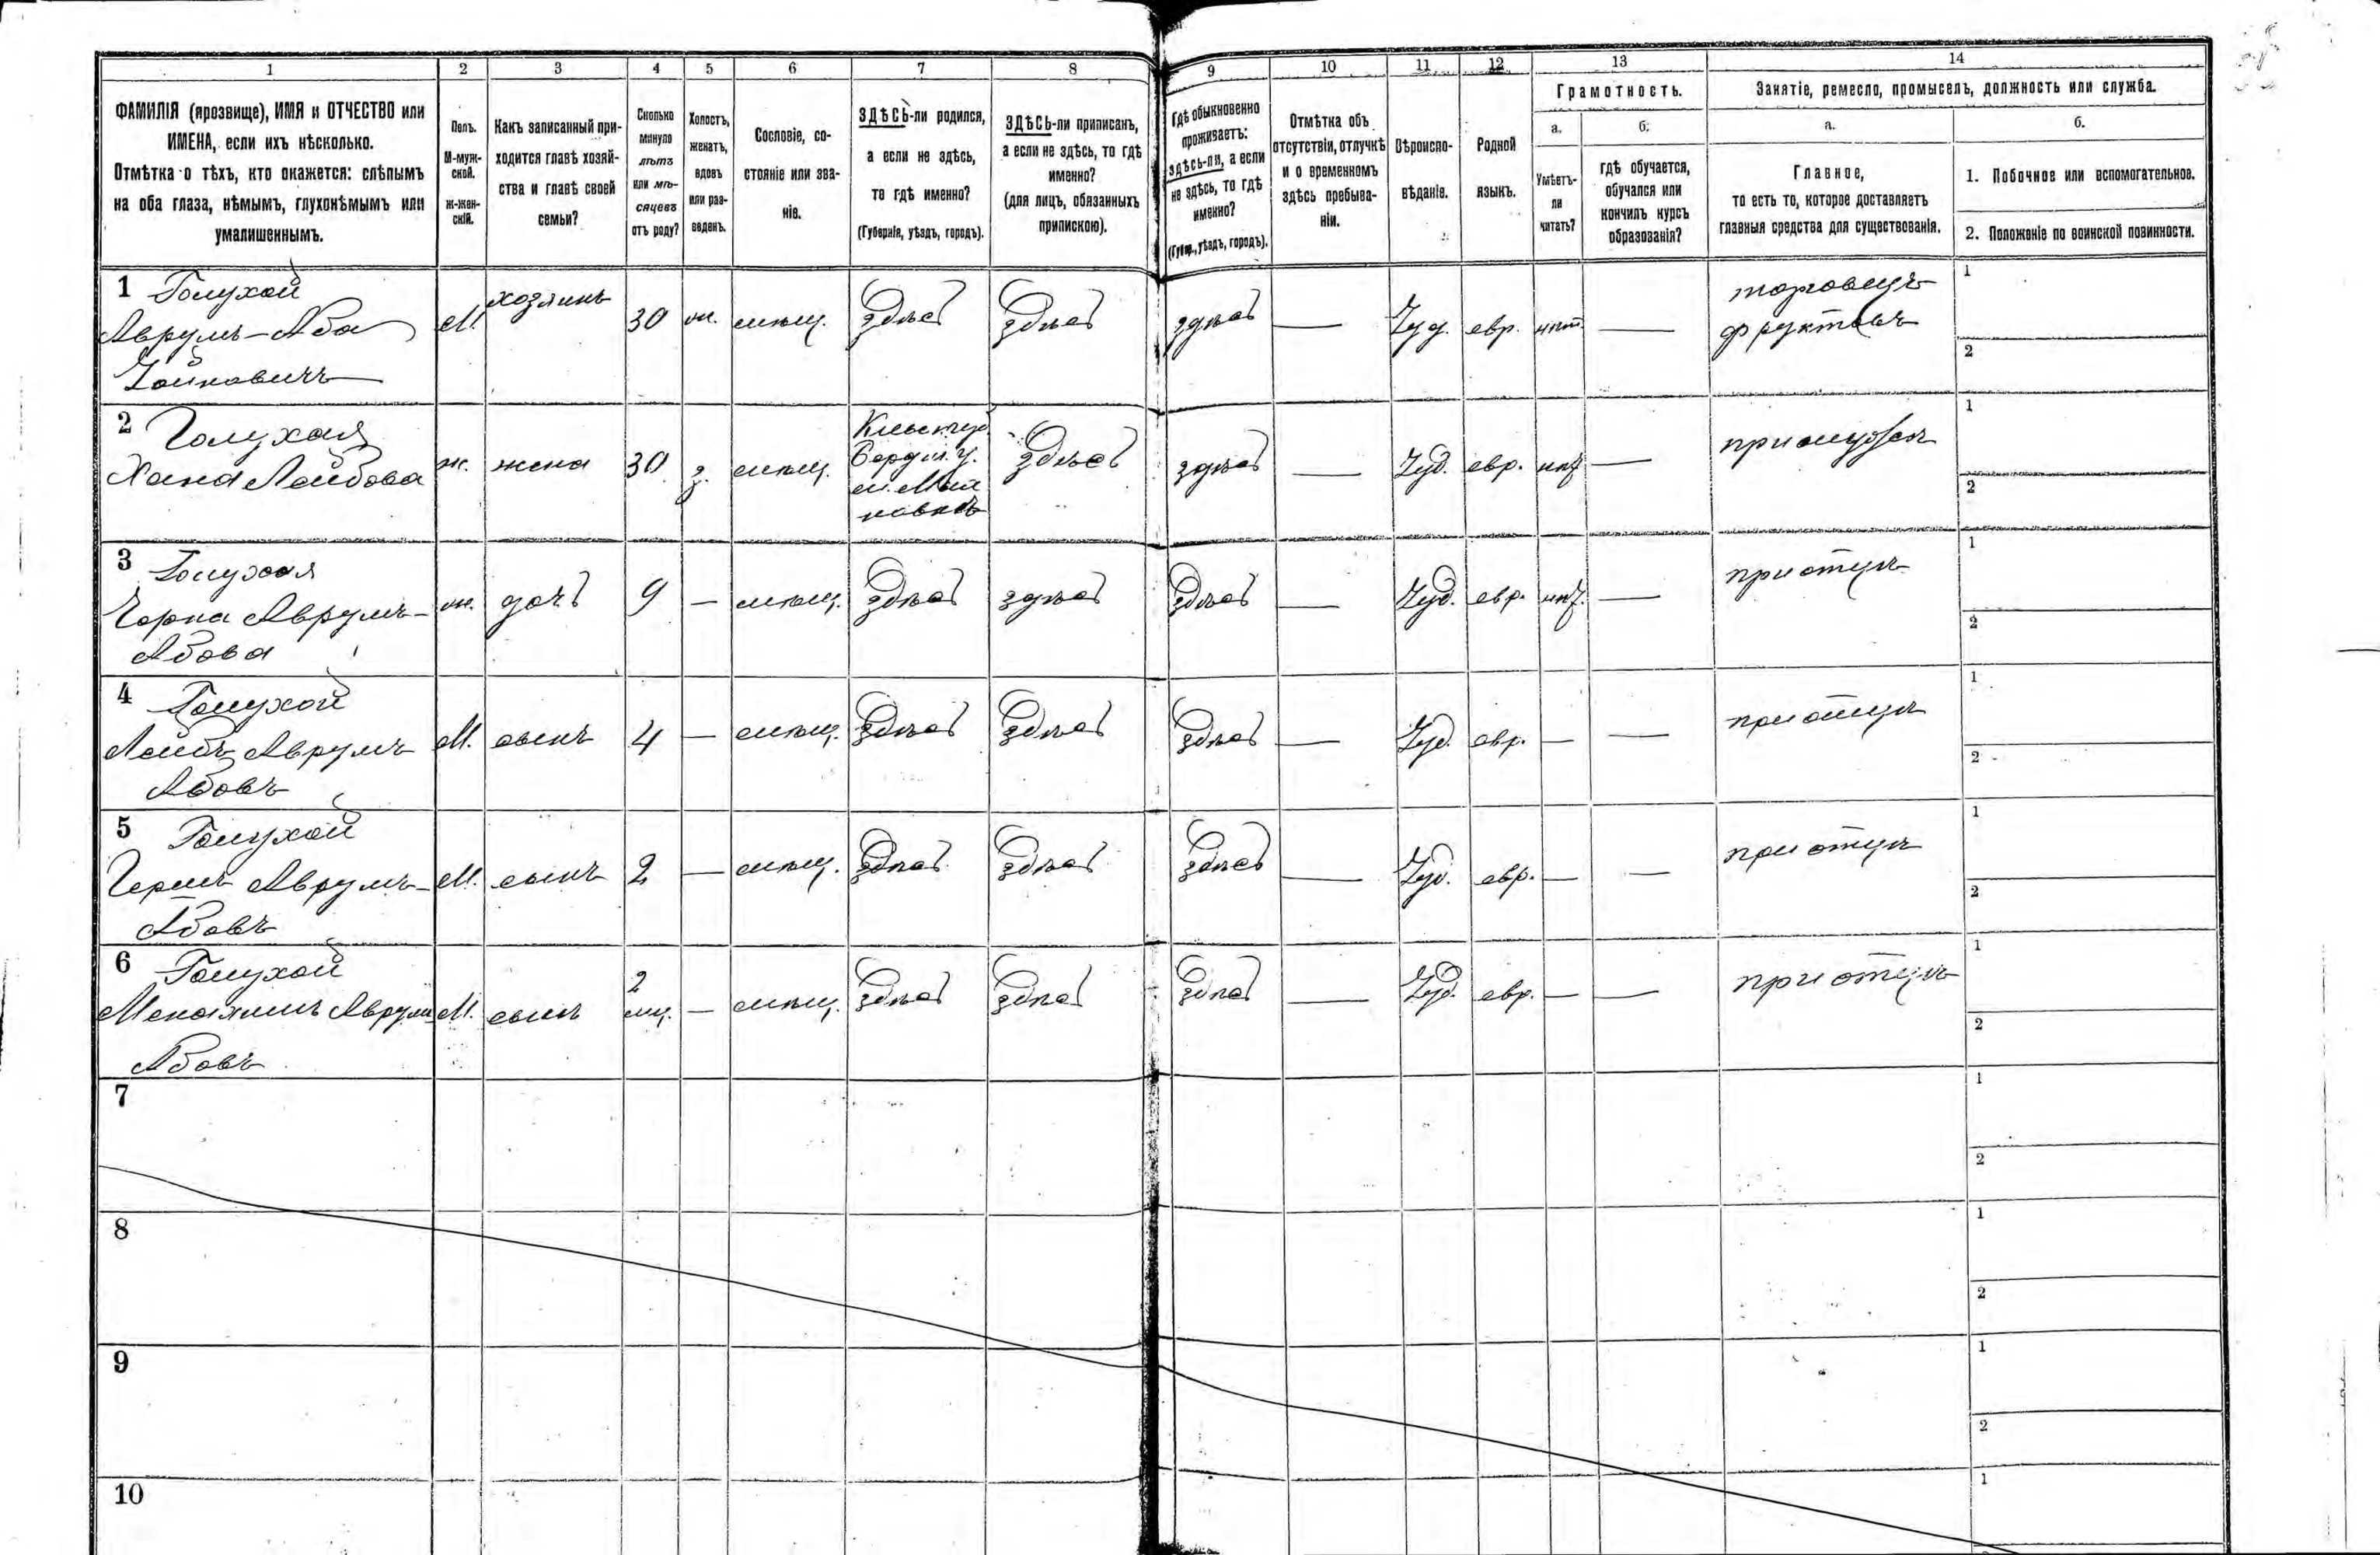 1 2 3 4 5 6 7 8 9 10 11 12 13 14
ФАМИЛІЯ (прозвище), ИМЯ и ОТЧЕСТВО или
ИМЕНА, если ихъ нѣсколько.
Отмѣтка о тѣхъ, кто окажется: слѣпымъ
на оба глаза, нѣмымъ, глухонѣмымъ или
умалишеннымъ.
Полъ.
М-муж-
ской.
ж-жен-
скій.
Какъ записанный при-
ходится главѣ хозяй-
ства и главѣ своей
семьи?
Сколько
минуло
лѣтъ
или мѣ-
сяцевъ
отъ роду?
Холостъ,
женатъ,
вдовъ
или раз-
веденъ.
Сословіе, со-
стояніе или зва-
ніе.
ЗДѢСЬ-ли родился,
а если не здѣсь,
то гдѣ именно?
(Губернія, уѣздъ, городъ).
ЗДѢСЬ-ли приписанъ,
а если не здѣсь, то гдѣ
именно?
(для лицъ, обязанныхъ
припискою).
Гдѣ обыкновенно
проживаетъ:
здѣсь-ли, а если
не здѣсь, то гдѣ
именно?
(Губерн., уѣздъ, городъ).
Отмѣтка объ
отсутствіи, отлучкѣ
и о временномъ
здѣсь пребыва-
ніи.
Вѣроиспо-
вѣданіе.
Родной
языкъ.
Грамотность.
а.
Умѣетъ-
ли
читать?
б.
гдѣ обучается,
обучался или
кончилъ курсъ
образованія?
Занятіе, ремесло, промыселъ, должность или служба.
а.
Главное,
то есть то, которое доставляетъ
главныя средства для существованія.
б.
1. Побочное или вспомогательное.
2. Положеніе по воинской повинности.
1 Голухой
Аврумъ-Аба
М. хозяинъ 30 ж. мѣщ. здѣсь здѣсь здѣсь — Іуд. евр. — торговецъ
фруктовъ
1
2
2 Голухая
Хана Лейбова
ж. жена 30 з. мѣщ. Кіевск губ.
Бердич. у.
здѣсь здѣсь — Іуд. евр. — при мужѣ
1
2
3 Голухая
Аврумъ-
Абова
ж. дочь 9 — мѣщ. здѣсь здѣсь здѣсь — Іуд. евр. — при отцѣ
1
2
4 Голухой
Лейбъ Аврумъ
Абовъ
М. сынъ 4 — мѣщ. здѣсь здѣсь здѣсь — Іуд. евр. — — при отцѣ
1
2
5 Голухой
Гершъ Аврумъ-
Абовъ
М. сынъ 2 — мѣщ. здѣсь здѣсь здѣсь — Іуд. евр. — — при отцѣ
1
2
6 Голухой
Менахимъ Аврумъ
Абовъ
М. сынъ 2
мц. — мѣщ. здѣсь здѣсь здѣсь — Іуд. евр. — — при отцѣ
1
2
7
1
2
8
1
2
9
1
2
10
1